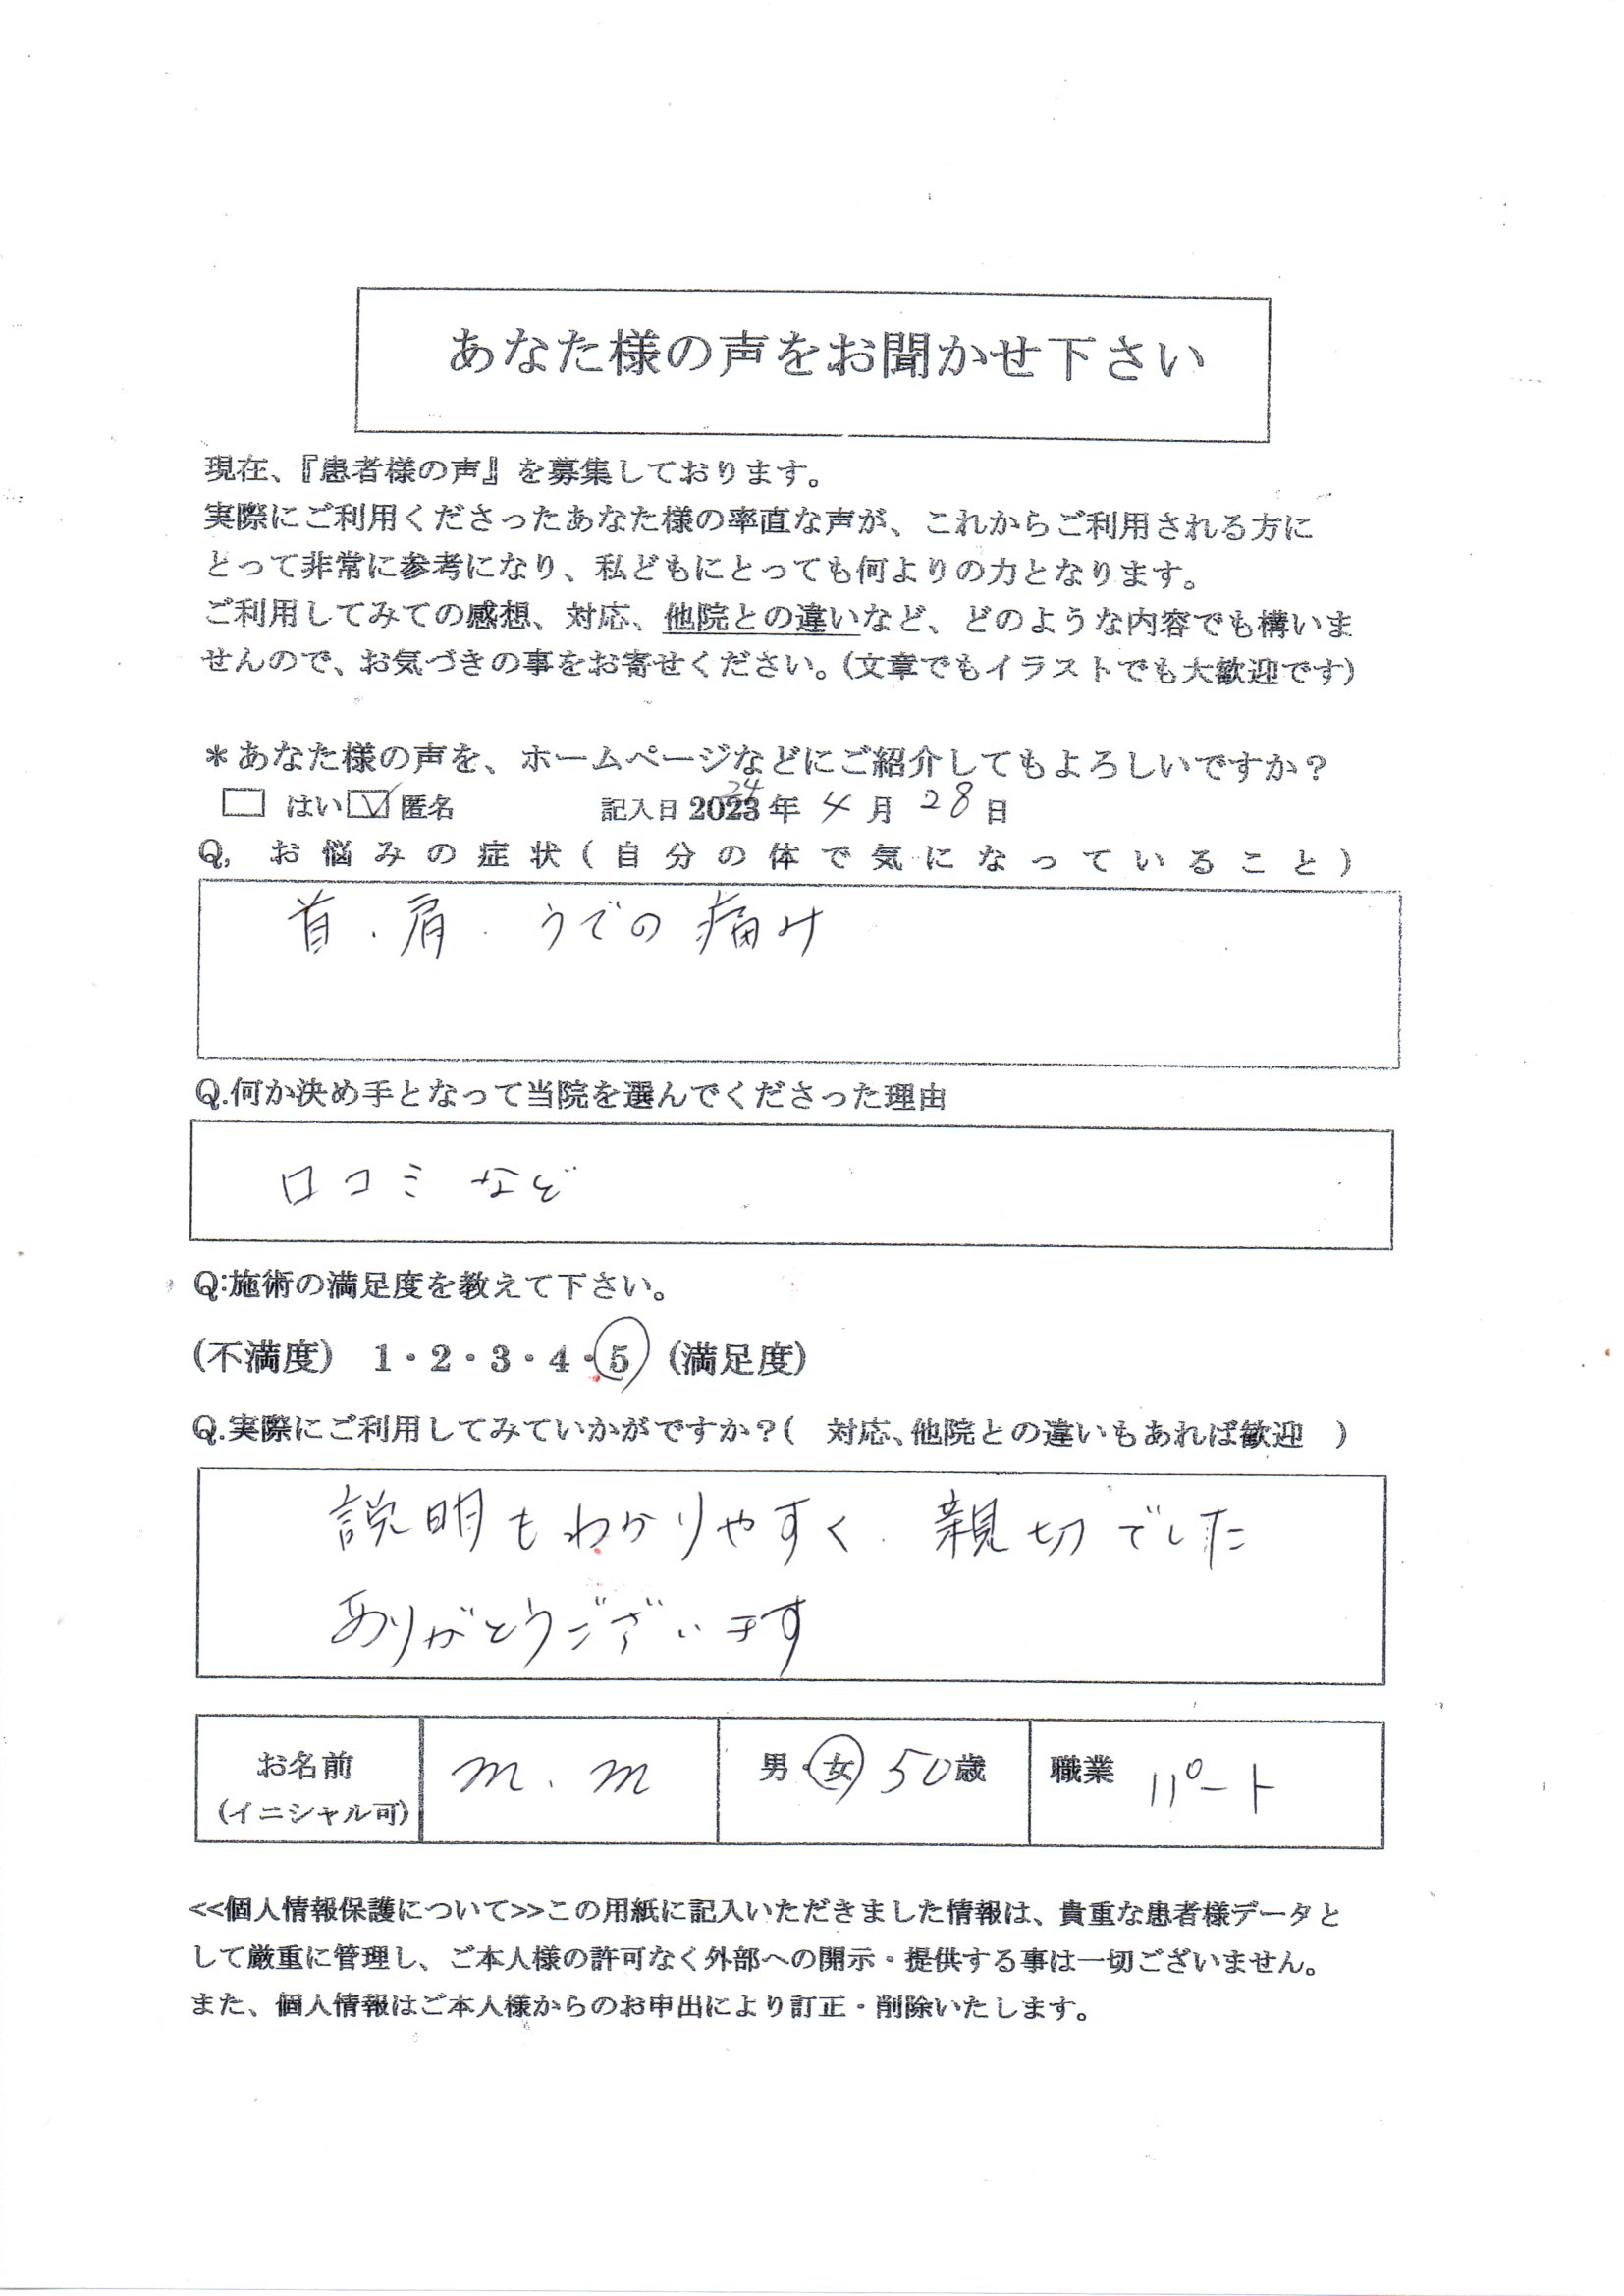 あなた様の声をお聞かせ下さい
現在、『患者様の声』を募集しております。
実際にご利用くださったあなた様の率直な声が、これからご利用される方に
とって非常に参考になり、私どもにとっても何よりの力となります。
ご利用してみての感想、対応、他院との違いなど、どのような内容でも構いま
せんので、お気づきの事をお寄せください。(文章でもイラストでも大歓迎です)
＊あなた様の声を、ホームページなどにご紹介してもよろしいですか？
24
□ はい ☑ 匿名 記入日 2023 年 4 月 28 日
Q, お悩みの症状(自分の体で気になっていること)
首.肩.うでの痛み
Q.何か決め手となって当院を選んでくださった理由
口コミなど
Q:施術の満足度を教えて下さい。
(不満度) 1・2・3・4・5 (満足度)
Q.実際にご利用してみていかがですか？( 対応、他院との違いもあれば歓迎 )
説明もわかりやすく.親切でした
ありがとうございます
お名前 m.m 男・女 50歳 職業 パート
(イニシャル可)
<<個人情報保護について>>この用紙に記入いただきました情報は、貴重な患者様データと
して厳重に管理し、ご本人様の許可なく外部への開示・提供する事は一切ございません。
また、個人情報はご本人様からのお申出により訂正・削除いたします。